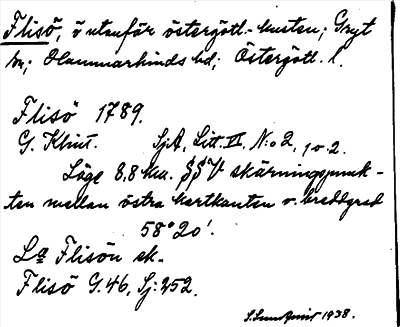 Flisö, ö utanför östergötl.-kusten; Gryt
sn; Hammarkinds hd; Östergötl. l.
Flisö 1789.
G. Klint. SjA, Litt. VI, N:o 2, 1 o 2.
Läge 8,8 km. SSV skärningspunk-
ten mellan östra kartkanten o. breddgrad
58°20'.
La Flisön sk.
Flisö G.46, Sj:252.
S. Lundqvist 1938.